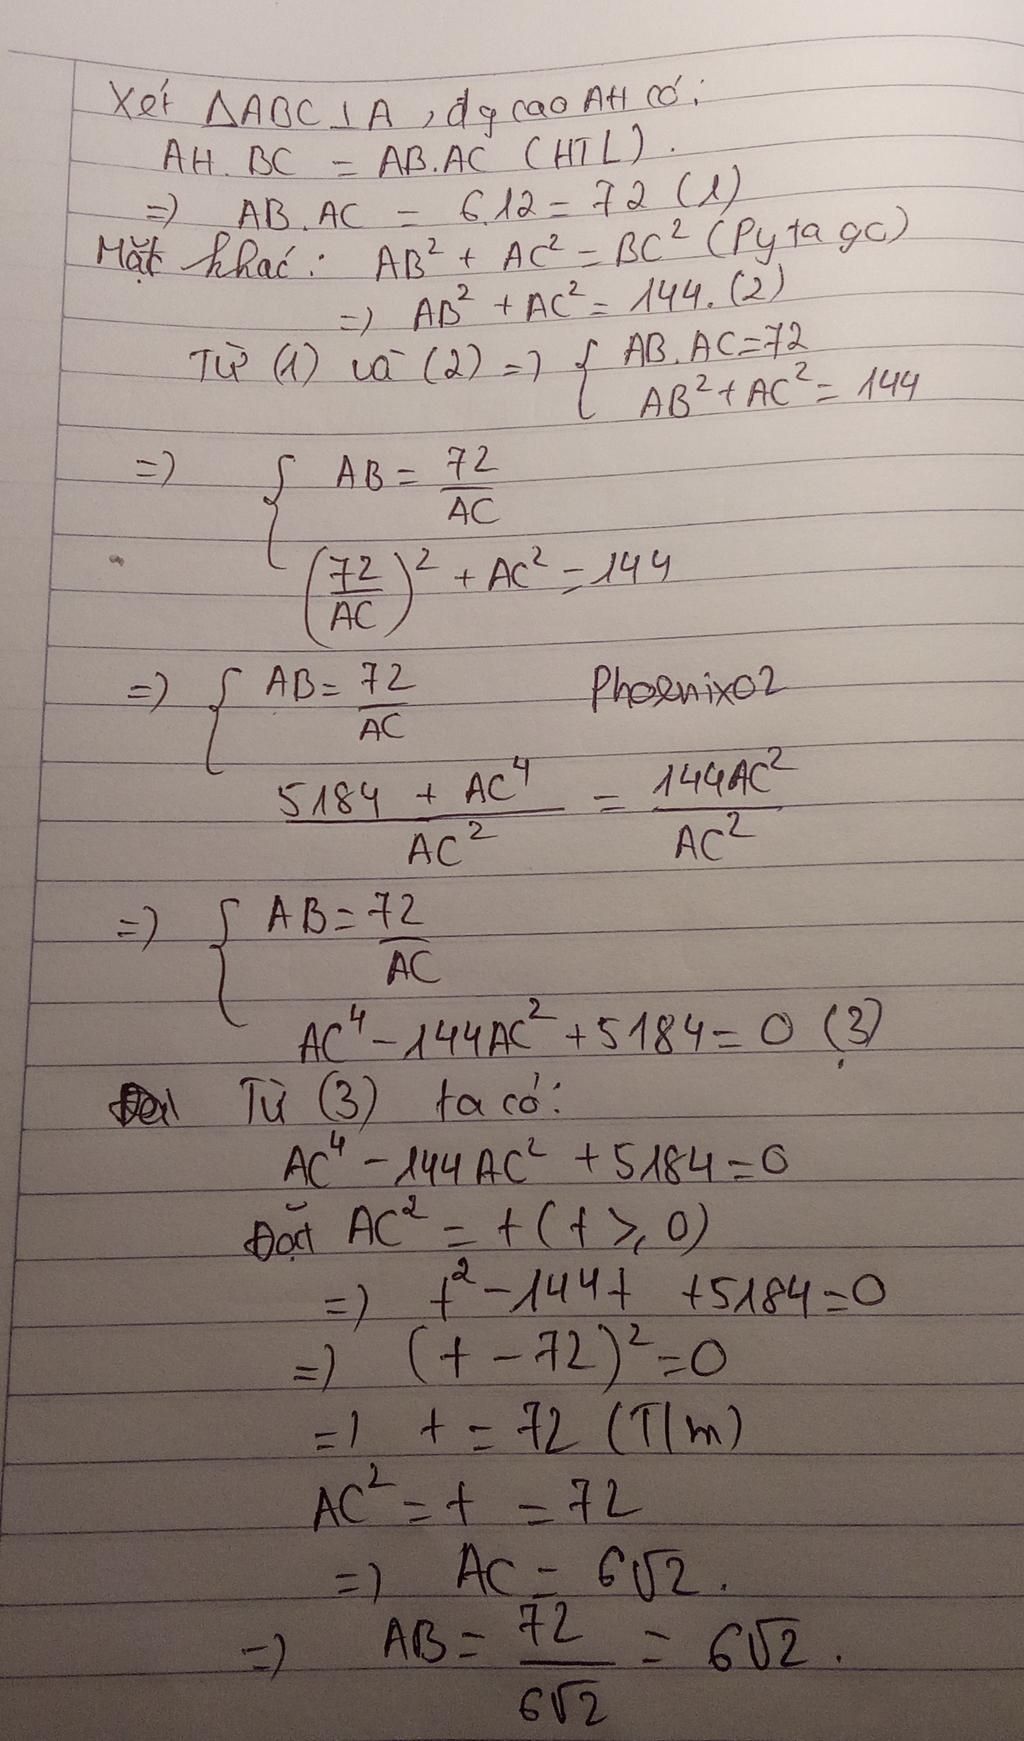 Xét ΔABC⊥A, đg cao AH có:
AH.BC = AB.AC (HTL).
=) AB.AC = 6.12 = 72 (1)
Mặt khác: AB² + AC² = BC² (Pytago)
=) AB² + AC² = 144. (2)
Từ (1) và (2) =) { AB.AC=72
AB² + AC² = 144
=) { AB = 72/AC
(72/AC)² + AC² = 144
=) { AB = 72/AC
Phoenix02
(5184 + AC⁴)/AC² = 144AC²/AC²
=) { AB = 72/AC
AC⁴ - 144AC² + 5184 = 0 (3)
Từ (3) ta có:
AC⁴ - 144AC² + 5184 = 0
Đặt AC² = t (t ≥ 0)
=) t² - 144t + 5184 = 0
=) (t - 72)² = 0
=) t = 72 (T/m)
AC² = t = 72
=) AC = 6√2.
=) AB = 72/6√2 = 6√2.